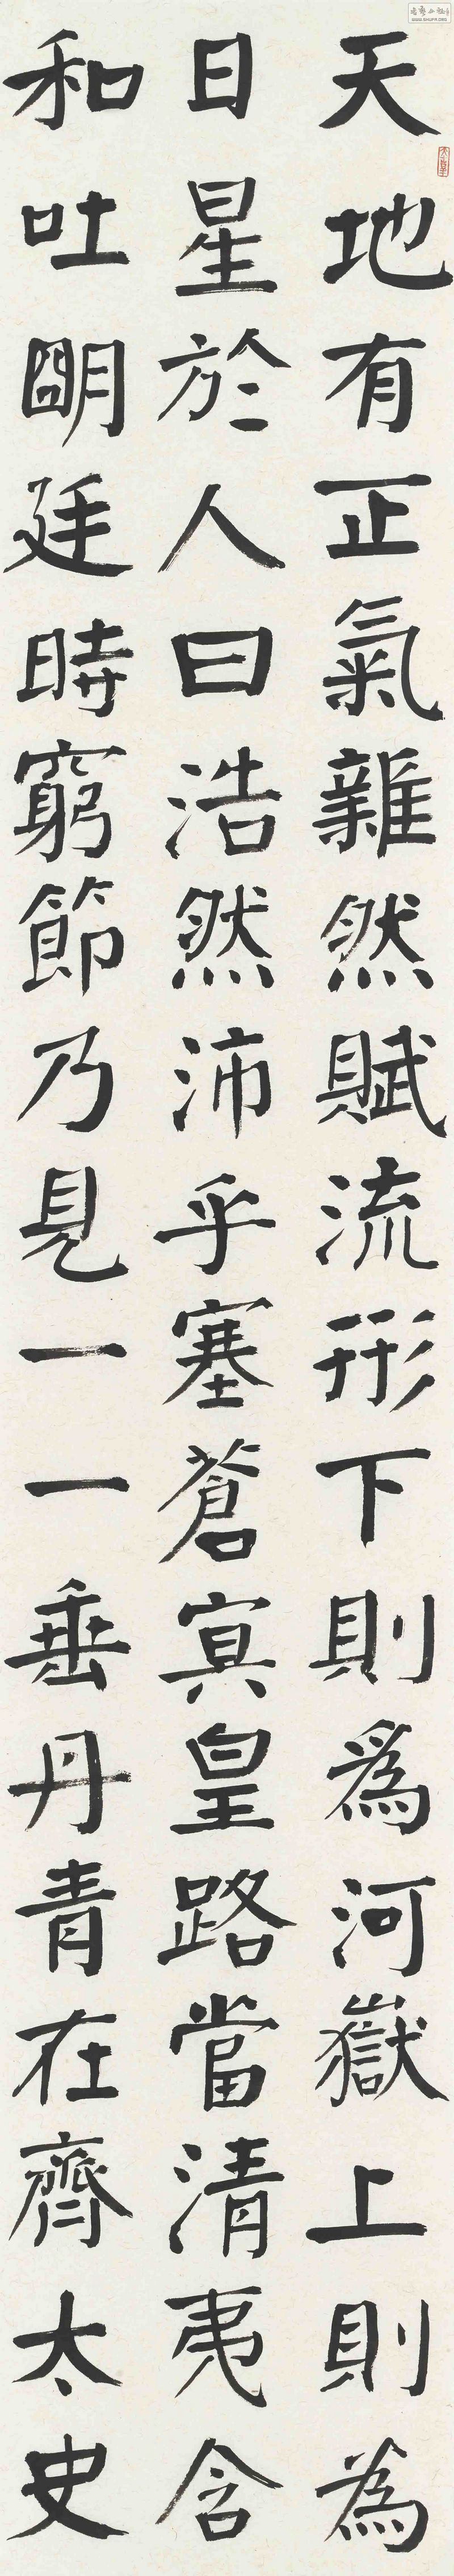 天地有正氣雜然賦流形下則爲河嶽上則為
日星於人曰浩然沛乎塞蒼冥皇路當清夷含
和吐明廷時窮節乃見一一垂丹青在齊太史